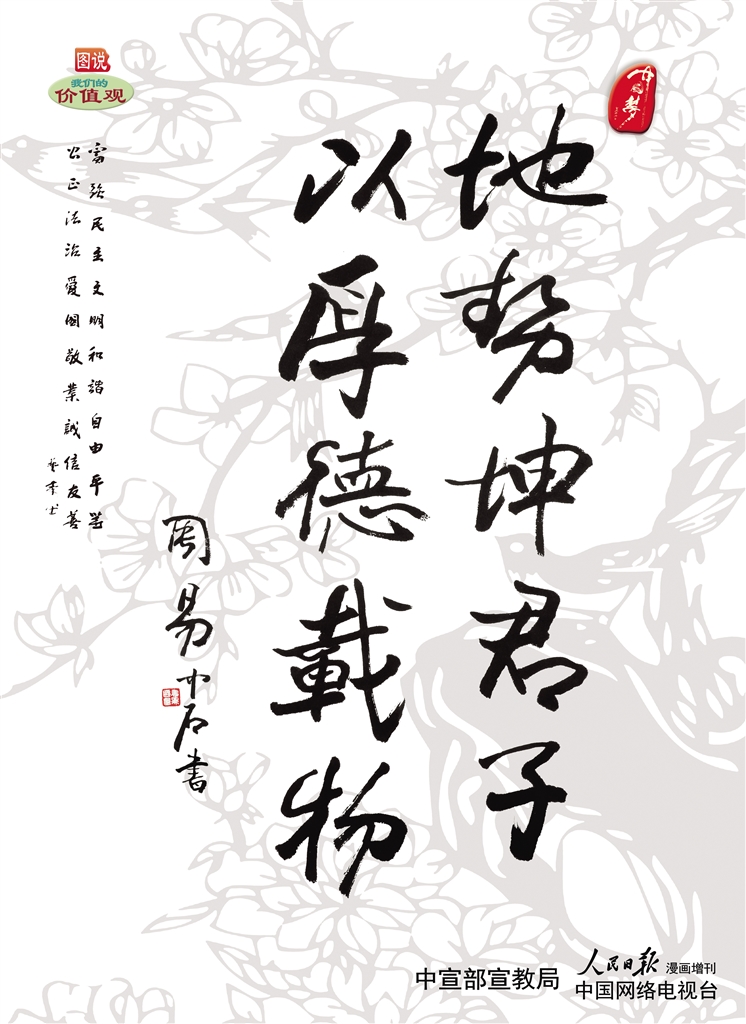 图说
我们的
价值观
中国梦
地势坤君子
以厚德载物
周易 中石书
富强民主文明和谐自由平等
公正法治爱国敬业诚信友善
中宣部宣教局
人民日报 漫画增刊
中国网络电视台